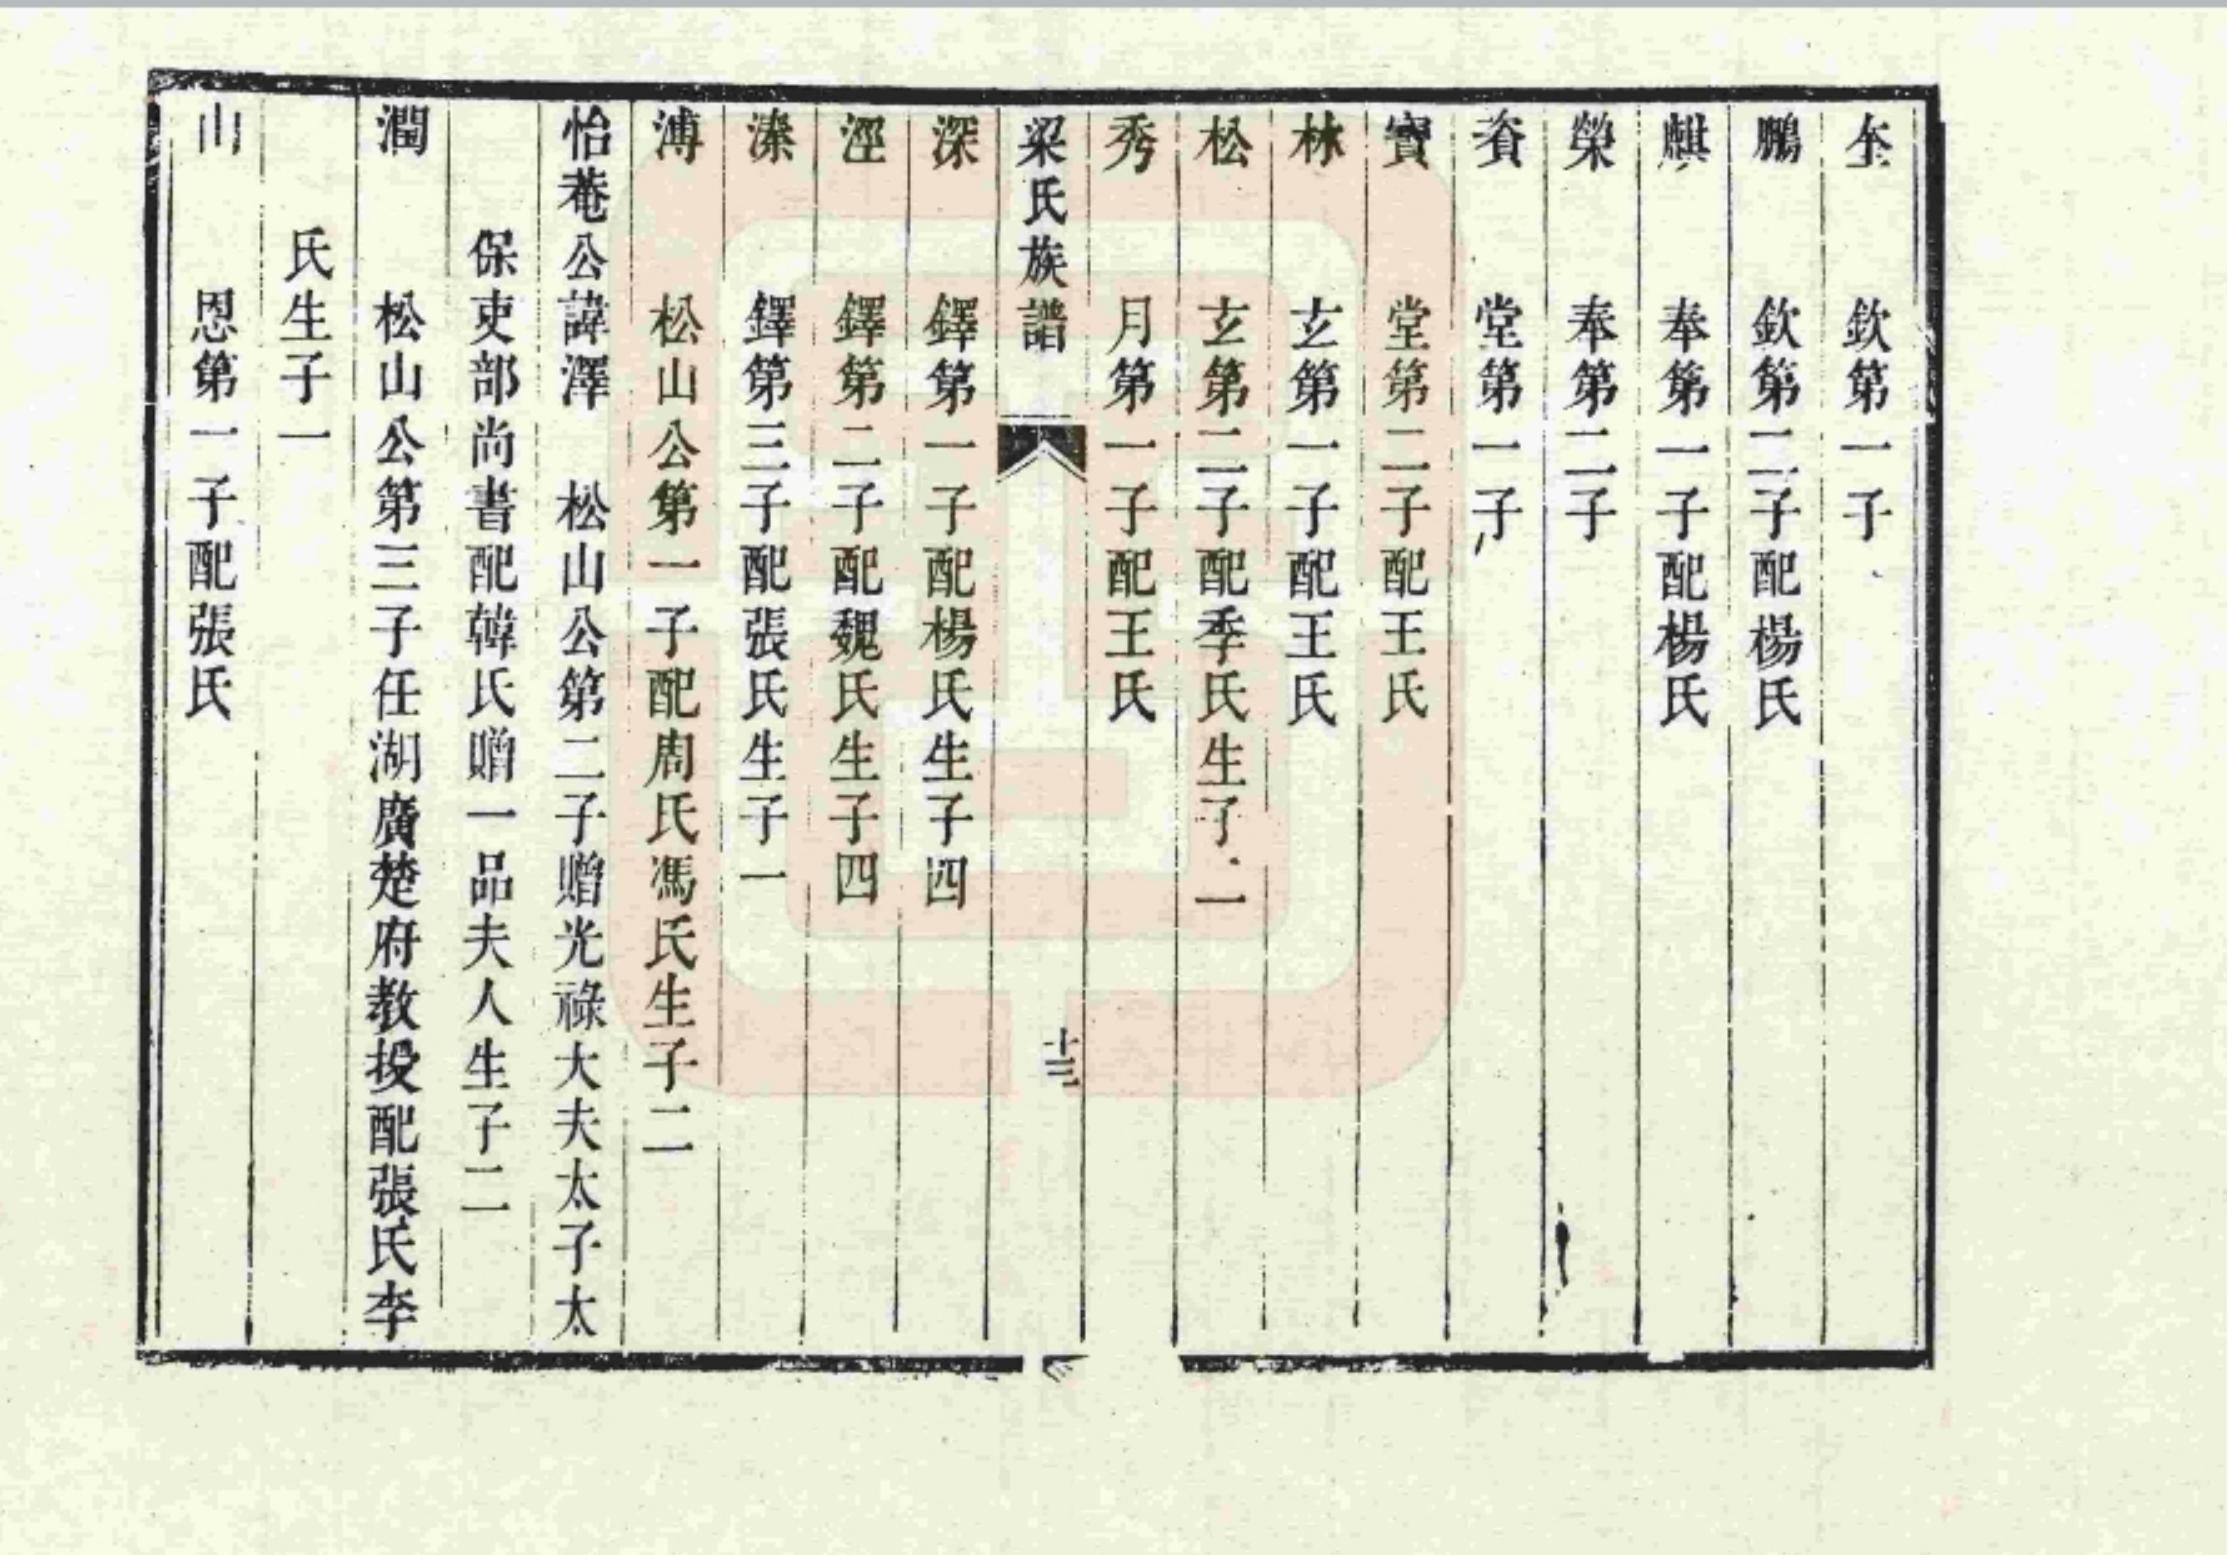 奎 欽第一子
鵬 欽第二子配楊氏
麒 奉第一子配楊氏
榮 奉第二子
賚 堂第一子
寶 堂第二子配王氏
林 玄第一子配王氏
松 玄第二子配季氏生子二
秀 月第一子配王氏
梁氏族譜 十三
深 鐸第一子配楊氏生子四
涇 鐸第二子配魏氏生子四
溱 鐸第三子配張氏生子一
溥 松山公第一子配周氏馮氏生子二
怡菴公諱澤 松山公第二子贈光祿大夫太子太
保吏部尚書配韓氏贈一品夫人生子二
潤 松山公第三子任湖廣楚府教授配張氏李
氏生子一
山 恩第一子配張氏